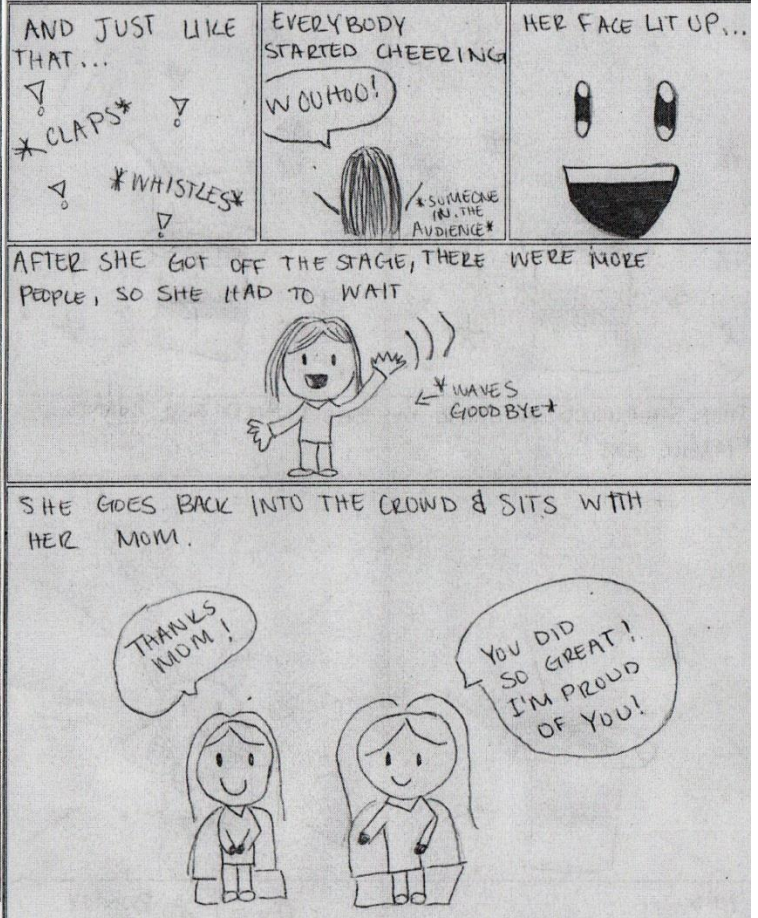 AND JUST LIKE
THAT...
*CLAPS*
*WHISTLES*
EVERYBODY
STARTED CHEERING
WOUHOO!
*SOMEONE
IN THE
AUDIENCE*
HER FACE LIT UP...
AFTER SHE GOT OFF THE STAGE, THERE WERE MORE
PEOPLE, SO SHE HAD TO WAIT
*WAVES
GOODBYE*
SHE GOES BACK INTO THE CROWD & SITS WITH
HER MOM.
THANKS
MOM!
YOU DID
SO GREAT!
I'M PROUD
OF YOU!